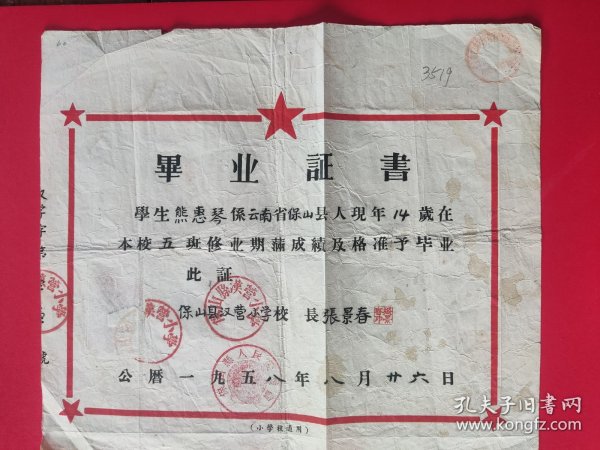 3519
畢业証書
學生熊惠琴係云南省保山县人現年14歲在
本校五班修业期滿成績及格准予毕业
此証
保山县汉营小学校 長張景春
公曆一九五八年八月廿六日
(小學校適用)
孔夫子旧书网